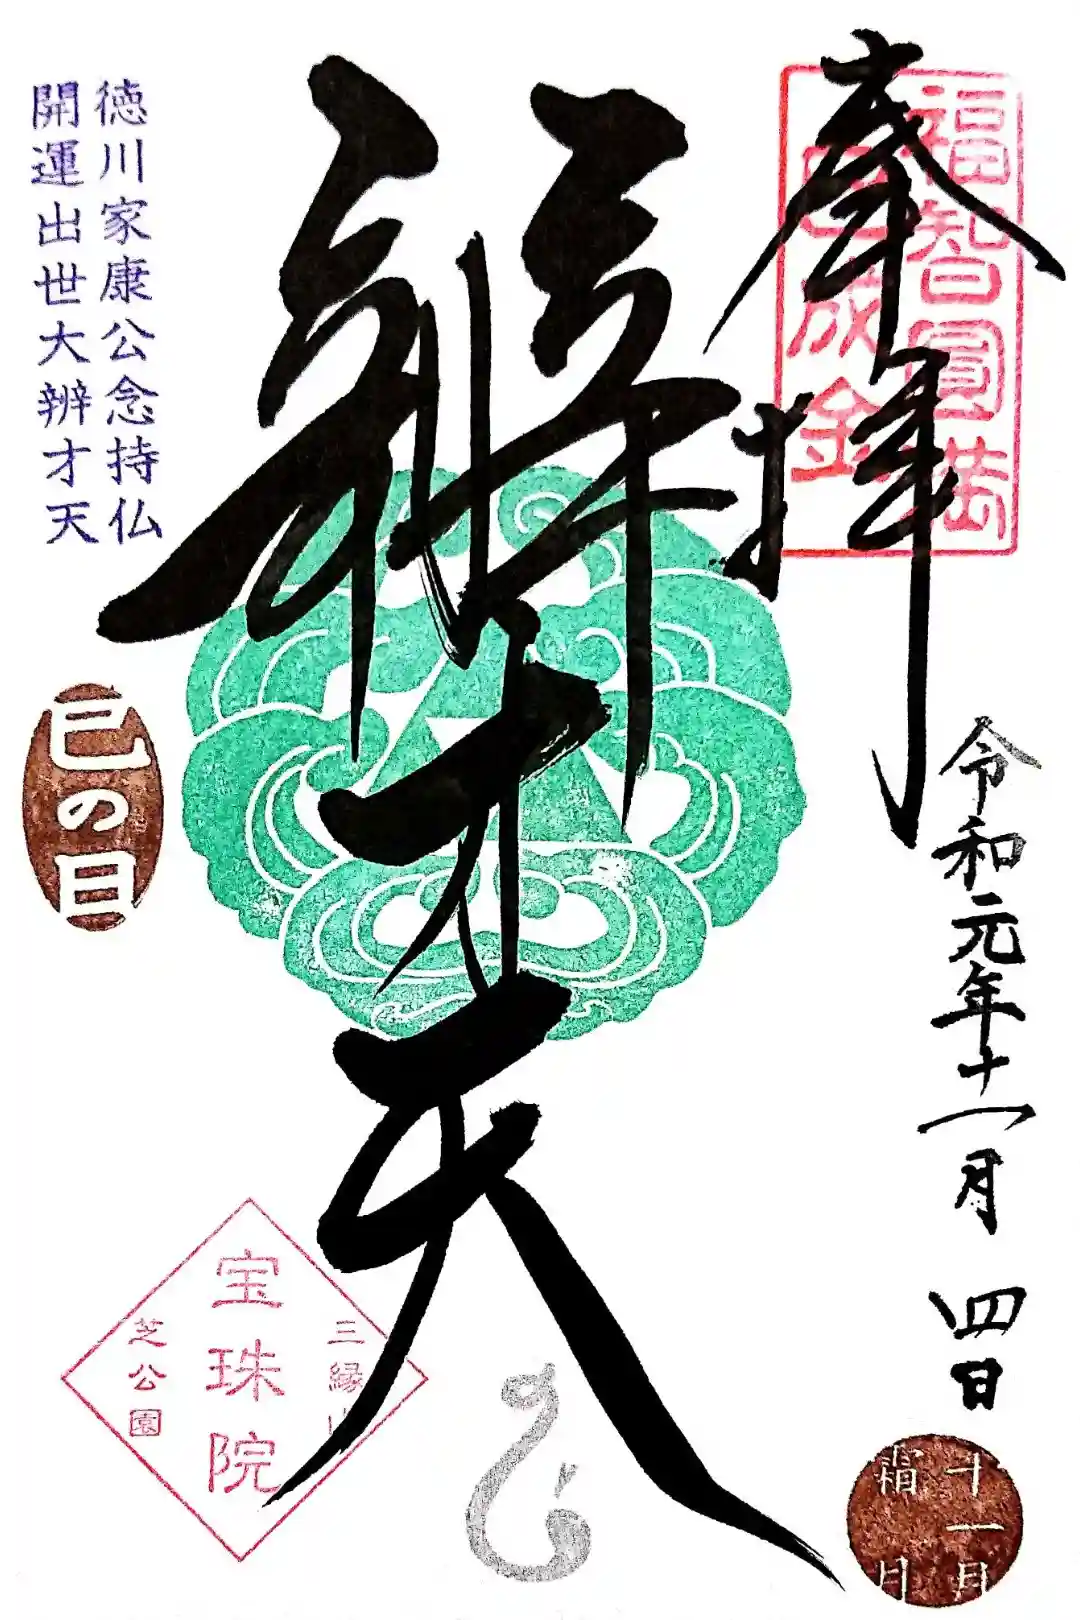 奉拝
福智圓満
令和元年十一月四日
十一月
霜月
辨才天
徳川家康公念持仏
開運出世大辨才天
巳の日
三縁山
宝珠院
芝公園